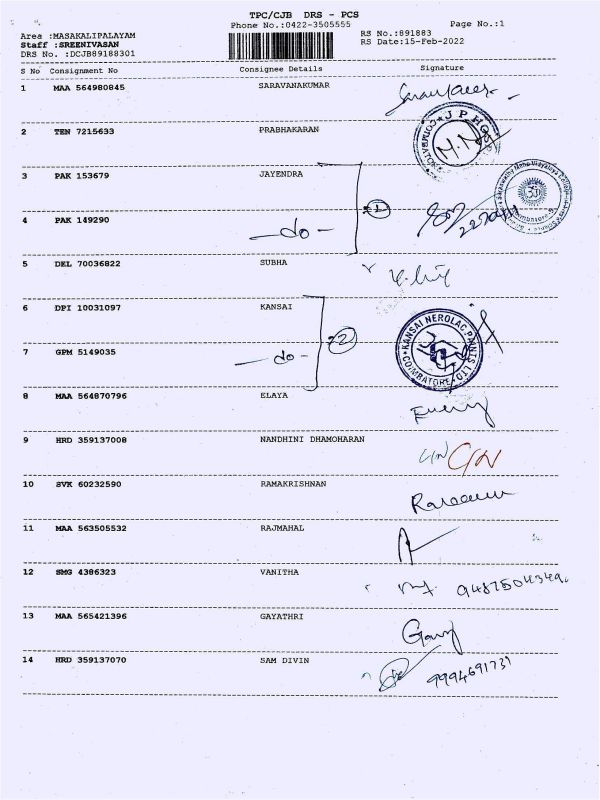 TPC/CJB DRS - PCS
Phone No.:0422-3505555
Page No.:1
Area :MASAKALIPALAYAM
RS No.:891883
Staff :SREENIVASAN
RS Date:15-Feb-2022
DRS No. :DCJB89188301
S No Consignment No Consignee Details Signature
1 MAA 564980845 SARAVANAKUMAR
2 TEN 7215633 PRABHAKARAN
3 PAK 153679 JAYENDRA
4 PAK 149290 -do-
5 DEL 70036822 SUBHA
6 DPI 10031097 KANSAI
2
KANSAI NEROLAC PAINTS LTD
COIMBATORE
7 GPM 5149035 -do-
8 MAA 564870796 ELAYA
9 HRD 359137008 NANDHINI DHAMOHARAN
10 SVK 60232590 RAMAKRISHNAN
11 MAA 563505532 RAJMAHAL
12 SMG 4386323 VANITHA
13 MAA 565421396 GAYATHRI
14 HRD 359137070 SAM DIVIN